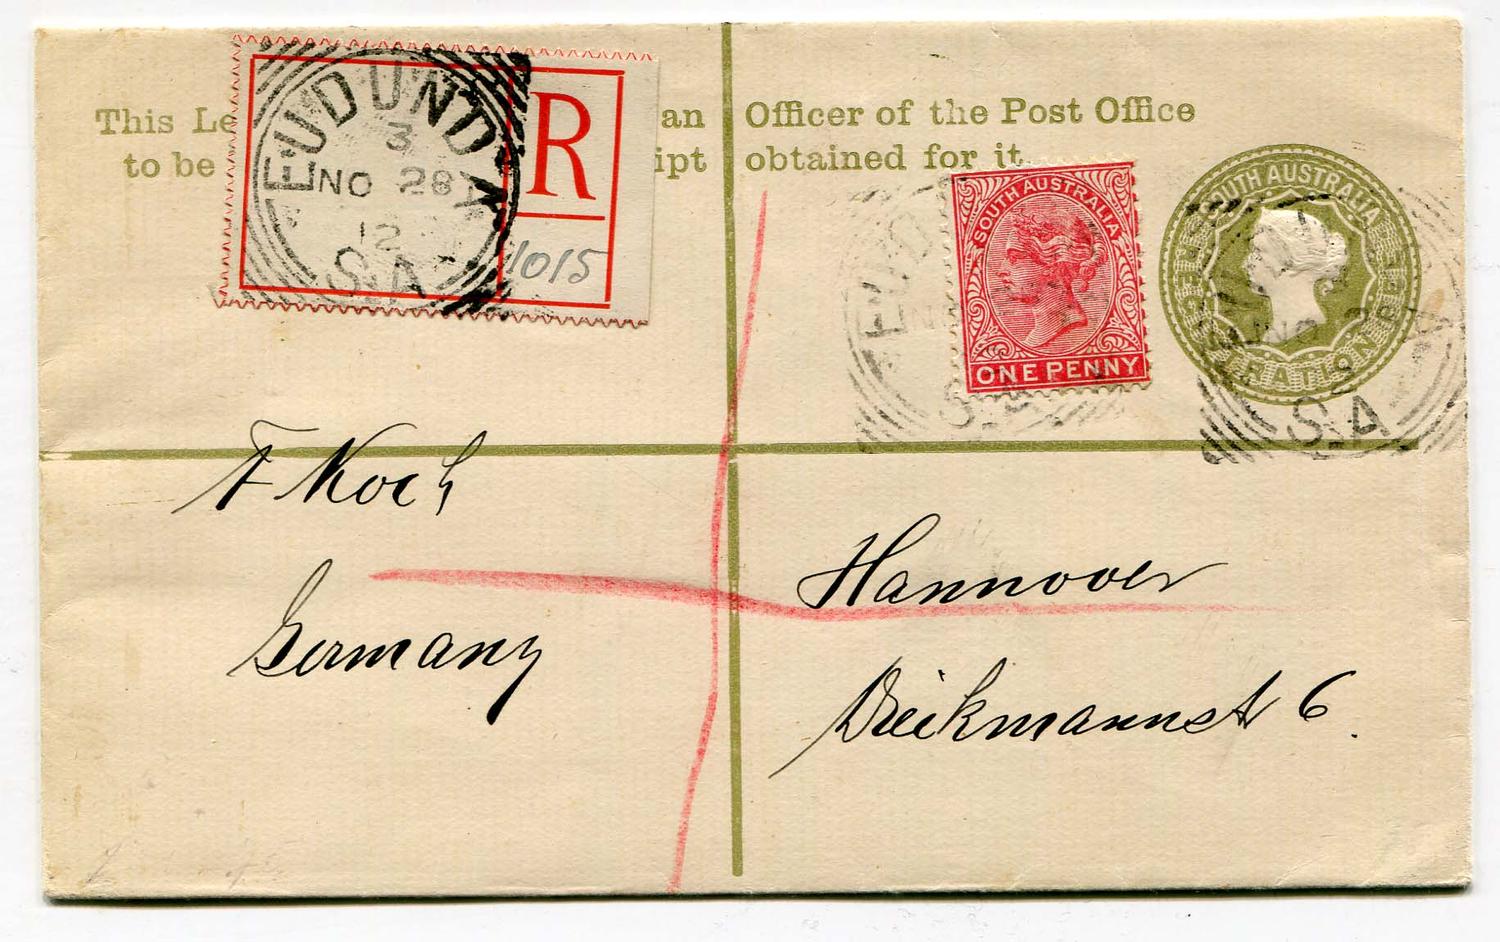 This Le an Officer of the Post Office
to be ipt obtained for it.
EUDUNDA
3
NO 28
12
S.A
R
1015
SOUTH AUSTRALIA
ONE PENNY
SOUTH AUSTRALIA
S.A
F Koch
Germany
Hannover
Dieckmannst 6.